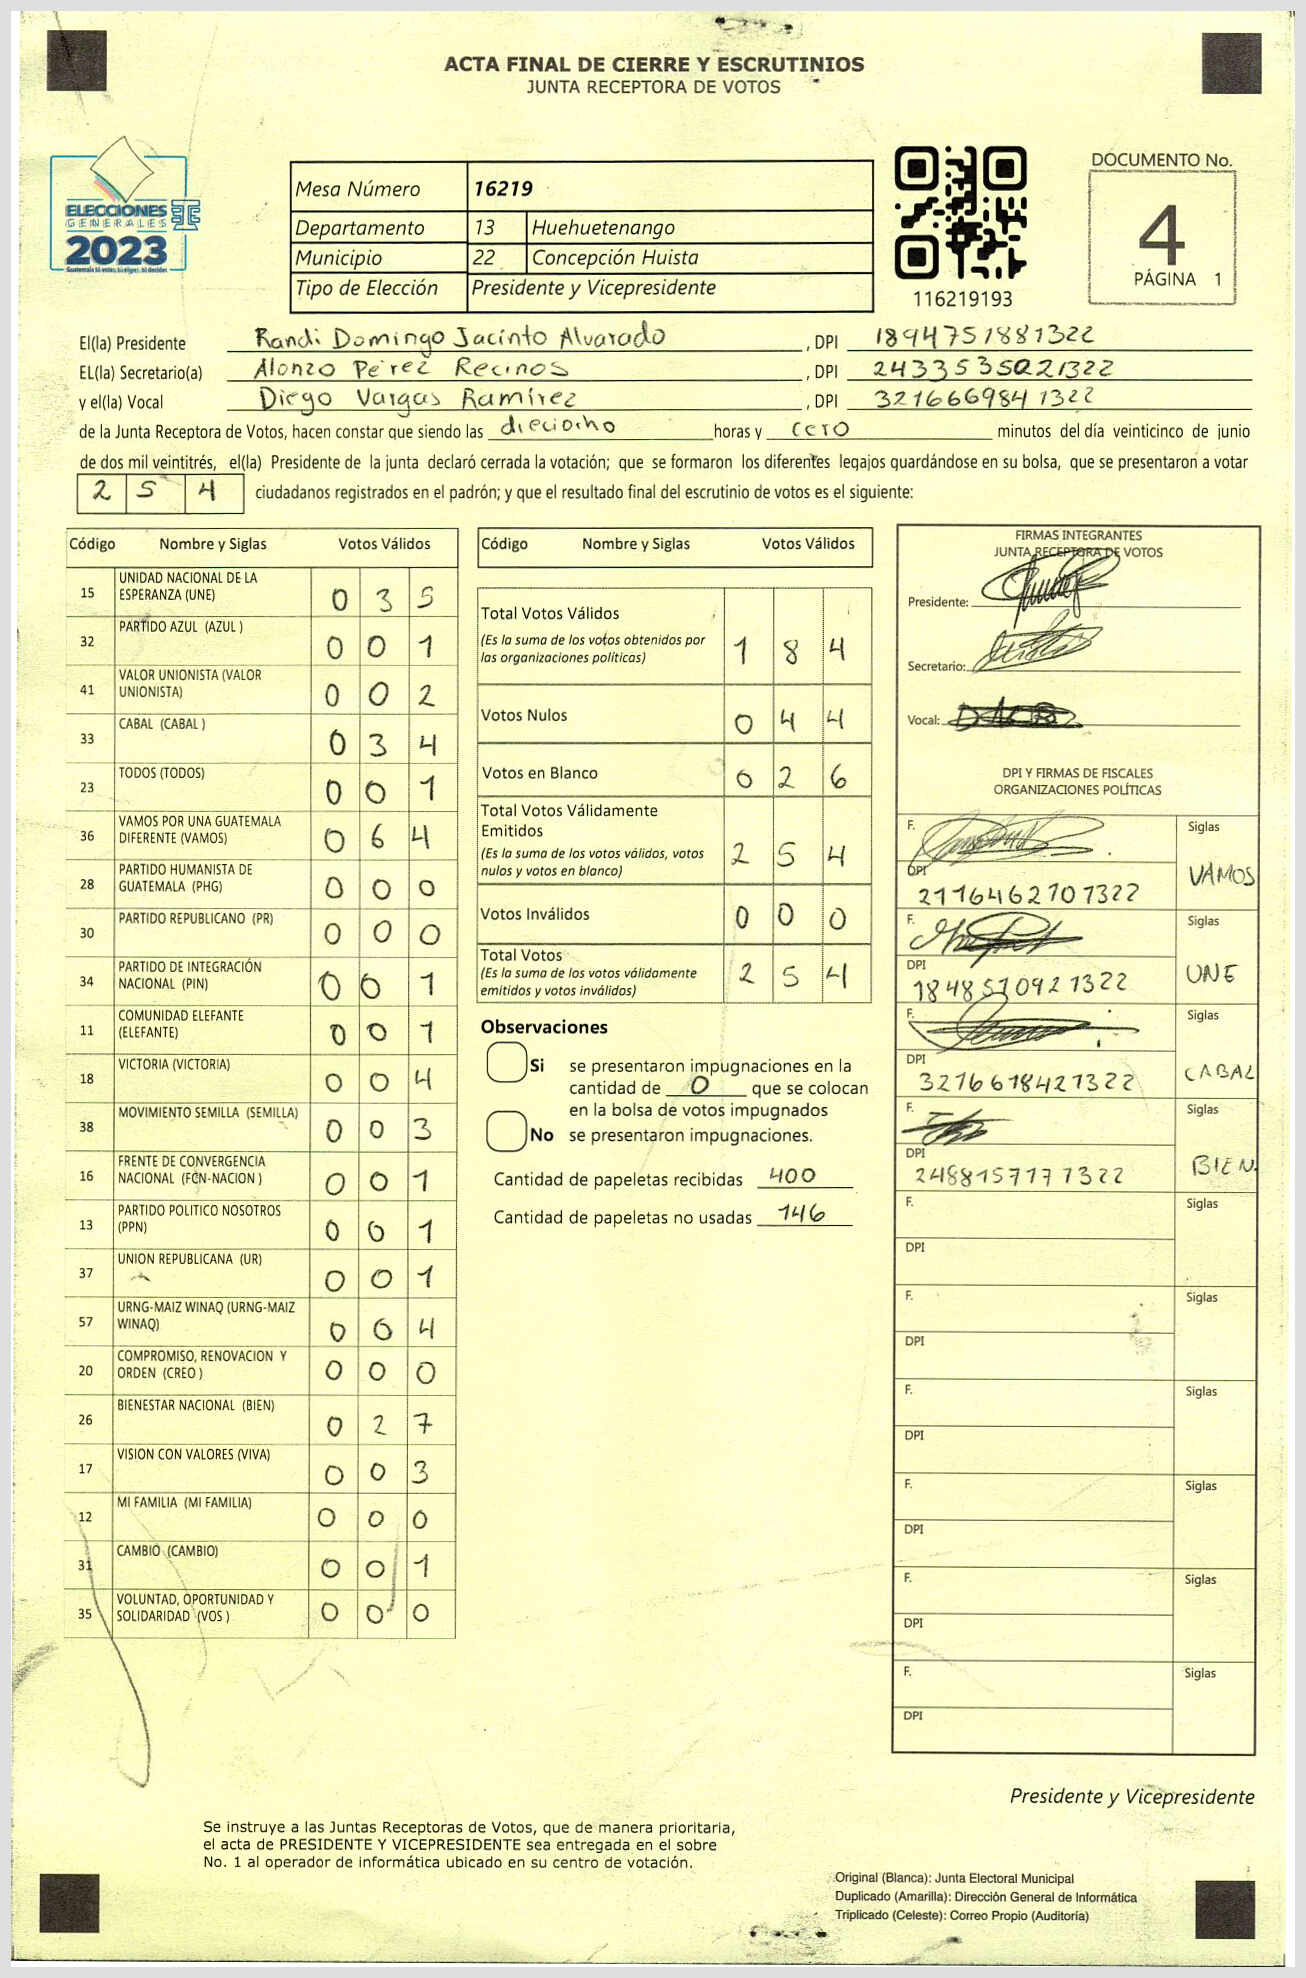 ACTA FINAL DE CIERRE Y ESCRUTINIOS
JUNTA RECEPTORA DE VOTOS
ELECCIONES
GENERALES
2023
Mesa Número 16219
Departamento 13 Huehuetenango
Municipio 22 Concepción Huista
Tipo de Elección Presidente y Vicepresidente
116219193
DOCUMENTO No.
4
PÁGINA 1
El(la) Presidente Randi Domingo Jacinto Alvarado, DPI 1894751881322
EL(la) Secretario(a) Alonzo Pérez Recinos, DPI 2433535021322
y el(la) Vocal Diego Vargas Ramírez, DPI 3216669841322
de la Junta Receptora de Votos, hacen constar que siendo las dieciocho horas y cero minutos del día veinticinco de junio
de dos mil veintitrés, el(la) Presidente de la junta declaró cerrada la votación; que se formaron los diferentes legajos guardándose en su bolsa, que se presentaron a votar
2 5 4 ciudadanos registrados en el padrón; y que el resultado final del escrutinio de votos es el siguiente:
Código Nombre y Siglas Votos Válidos
15 UNIDAD NACIONAL DE LA ESPERANZA (UNE) 0 3 5
32 PARTIDO AZUL (AZUL ) 0 0 1
41 VALOR UNIONISTA (VALOR UNIONISTA) 0 0 2
33 CABAL (CABAL ) 0 3 4
23 TODOS (TODOS) 0 0 1
36 VAMOS POR UNA GUATEMALA DIFERENTE (VAMOS) 0 6 4
28 PARTIDO HUMANISTA DE GUATEMALA (PHG) 0 0 0
30 PARTIDO REPUBLICANO (PR) 0 0 0
34 PARTIDO DE INTEGRACIÓN NACIONAL (PIN) 0 0 1
11 COMUNIDAD ELEFANTE (ELEFANTE) 0 0 1
18 VICTORIA (VICTORIA) 0 0 4
38 MOVIMIENTO SEMILLA (SEMILLA) 0 0 3
16 FRENTE DE CONVERGENCIA NACIONAL (FCN-NACION ) 0 0 1
13 PARTIDO POLITICO NOSOTROS (PPN) 0 0 1
37 UNION REPUBLICANA (UR) 0 0 1
57 URNG-MAIZ WINAQ (URNG-MAIZ WINAQ) 0 0 4
20 COMPROMISO, RENOVACION Y ORDEN (CREO ) 0 0 0
26 BIENESTAR NACIONAL (BIEN) 0 2 7
17 VISION CON VALORES (VIVA) 0 0 3
12 MI FAMILIA (MI FAMILIA) 0 0 0
31 CAMBIO (CAMBIO) 0 0 1
35 VOLUNTAD, OPORTUNIDAD Y SOLIDARIDAD (VOS ) 0 0 0
Código Nombre y Siglas Votos Válidos
Total Votos Válidos 1 8 4
(Es la suma de los votos obtenidos por
las organizaciones políticas)
Votos Nulos 0 4 4
Votos en Blanco 0 2 6
Total Votos Válidamente
Emitidos 2 5 4
(Es la suma de los votos válidos, votos
nulos y votos en blanco)
Votos Inválidos 0 0 0
Total Votos 2 5 4
(Es la suma de los votos válidamente
emitidos y votos inválidos)
Observaciones
Si se presentaron impugnaciones en la
cantidad de 0 que se colocan
en la bolsa de votos impugnados
No se presentaron impugnaciones.
Cantidad de papeletas recibidas 400
Cantidad de papeletas no usadas 146
FIRMAS INTEGRANTES
JUNTA RECEPTORA DE VOTOS
Presidente:
Secretario:
Vocal:
DPI Y FIRMAS DE FISCALES
ORGANIZACIONES POLÍTICAS
F. Siglas
DPI 2116462701322 VAMOS
F. Siglas
DPI 1848510921322 UNE
F. Siglas
DPI 3216618421322 CABAL
F. Siglas
DPI 2488157171322 BIEN.
F. Siglas
DPI
F. Siglas
DPI
F. Siglas
DPI
F. Siglas
DPI
F. Siglas
DPI
F. Siglas
DPI
Presidente y Vicepresidente
Se instruye a las Juntas Receptoras de Votos, que de manera prioritaria,
el acta de PRESIDENTE Y VICEPRESIDENTE sea entregada en el sobre
No. 1 al operador de informática ubicado en su centro de votación.
Original (Blanca): Junta Electoral Municipal
Duplicado (Amarilla): Dirección General de Informática
Triplicado (Celeste): Correo Propio (Auditoría)